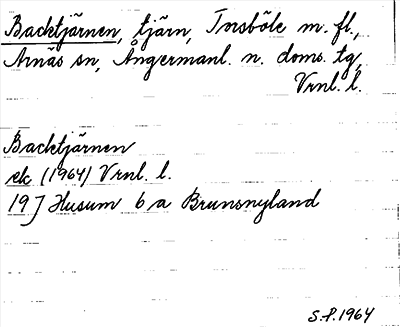 Backtjärnen, tjärn, Torsböle m. fl.,
Arnäs sn, Ångermanl. n. doms. tg,
Vrnl. l.
Backtjärnen
ek (1964) Vrnl. l.
19 J Husum 6 a Brunsnyland
S.P. 1964